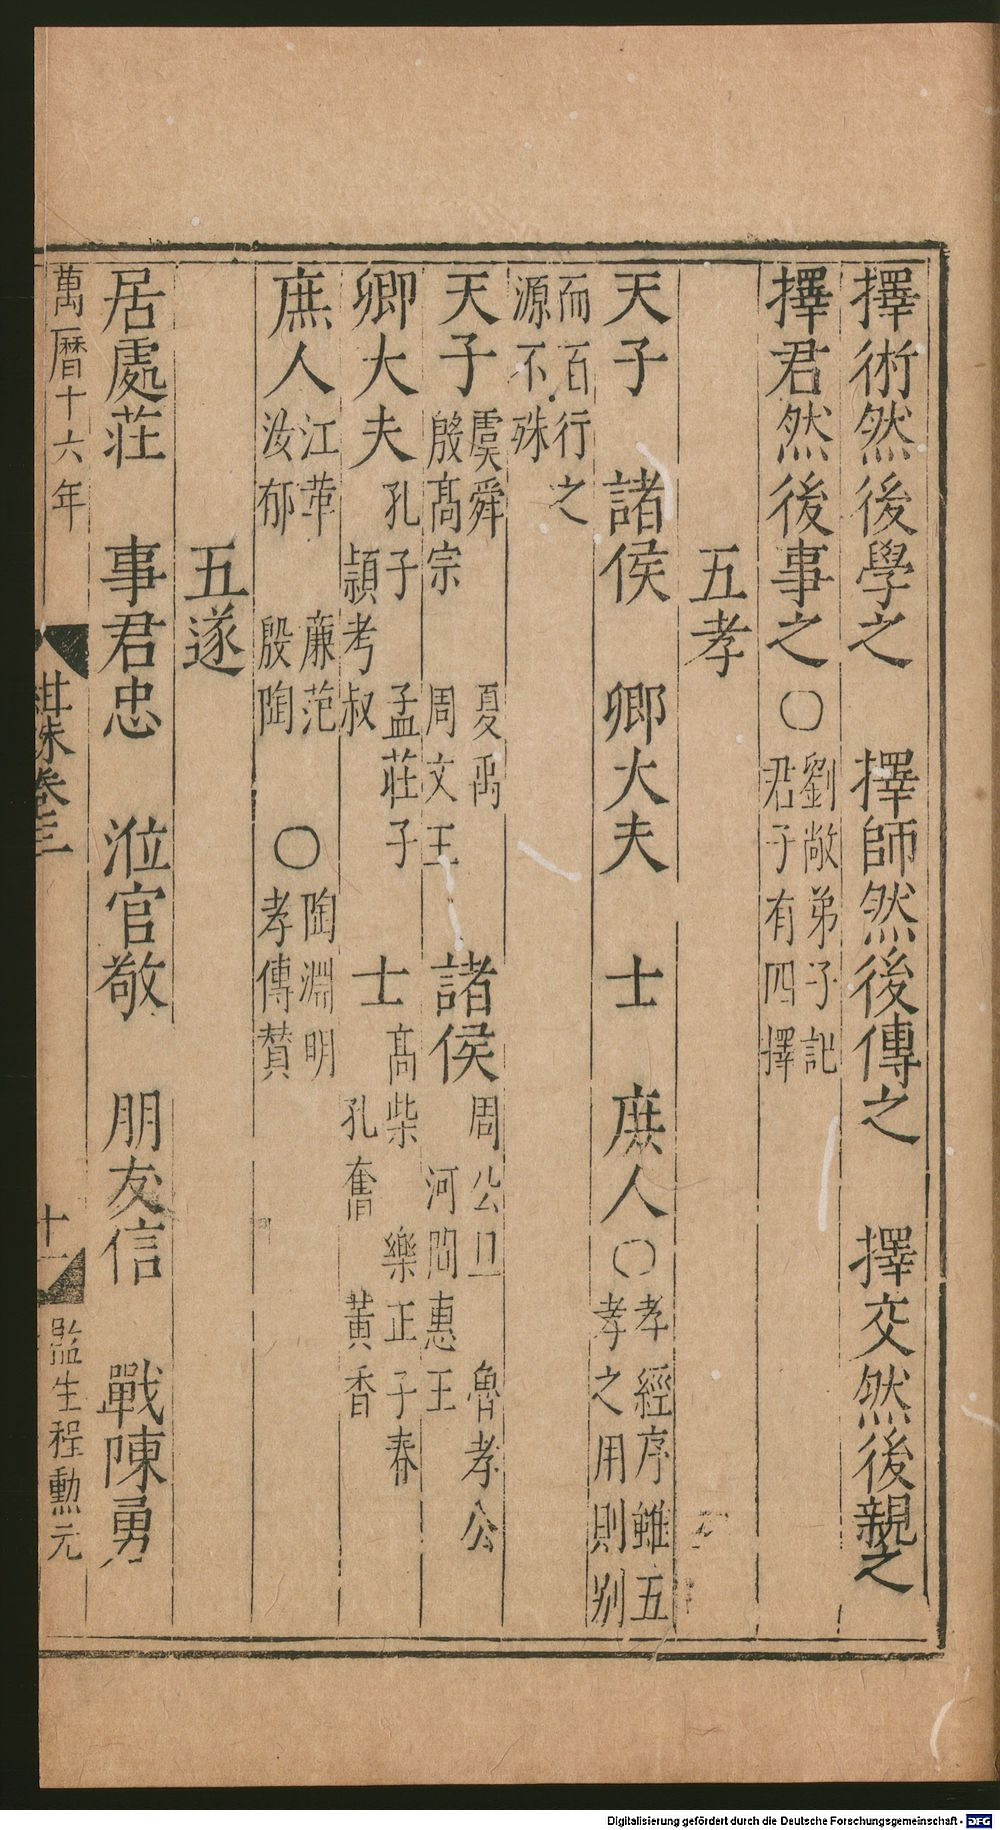 擇術然後學之　擇師然後傳之　擇交然後親之
擇君然後事之〇劉敞弟子記君子有四擇
五孝
天子　諸侯　卿大夫　士　庶人〇孝經序雖五孝之用則别
而百行之源不殊
天子虞舜　夏禹　殷髙宗　周文王　諸侯周公旦　魯孝公　河間惠王
卿大夫孔子　孟莊子　頴考叔　士髙柴　樂正子春　孔奮　黃香
庶人江革　廉范　汝郁　殷陶　〇陶淵明孝傳贊
五遂
居處莊　事君忠　涖官敬　朋友信　戰陳勇
萬曆十六年
紺珠卷三
十一
監生程勲元
Digitalisierung gefördert durch die Deutsche Forschungsgemeinschaft - DFG